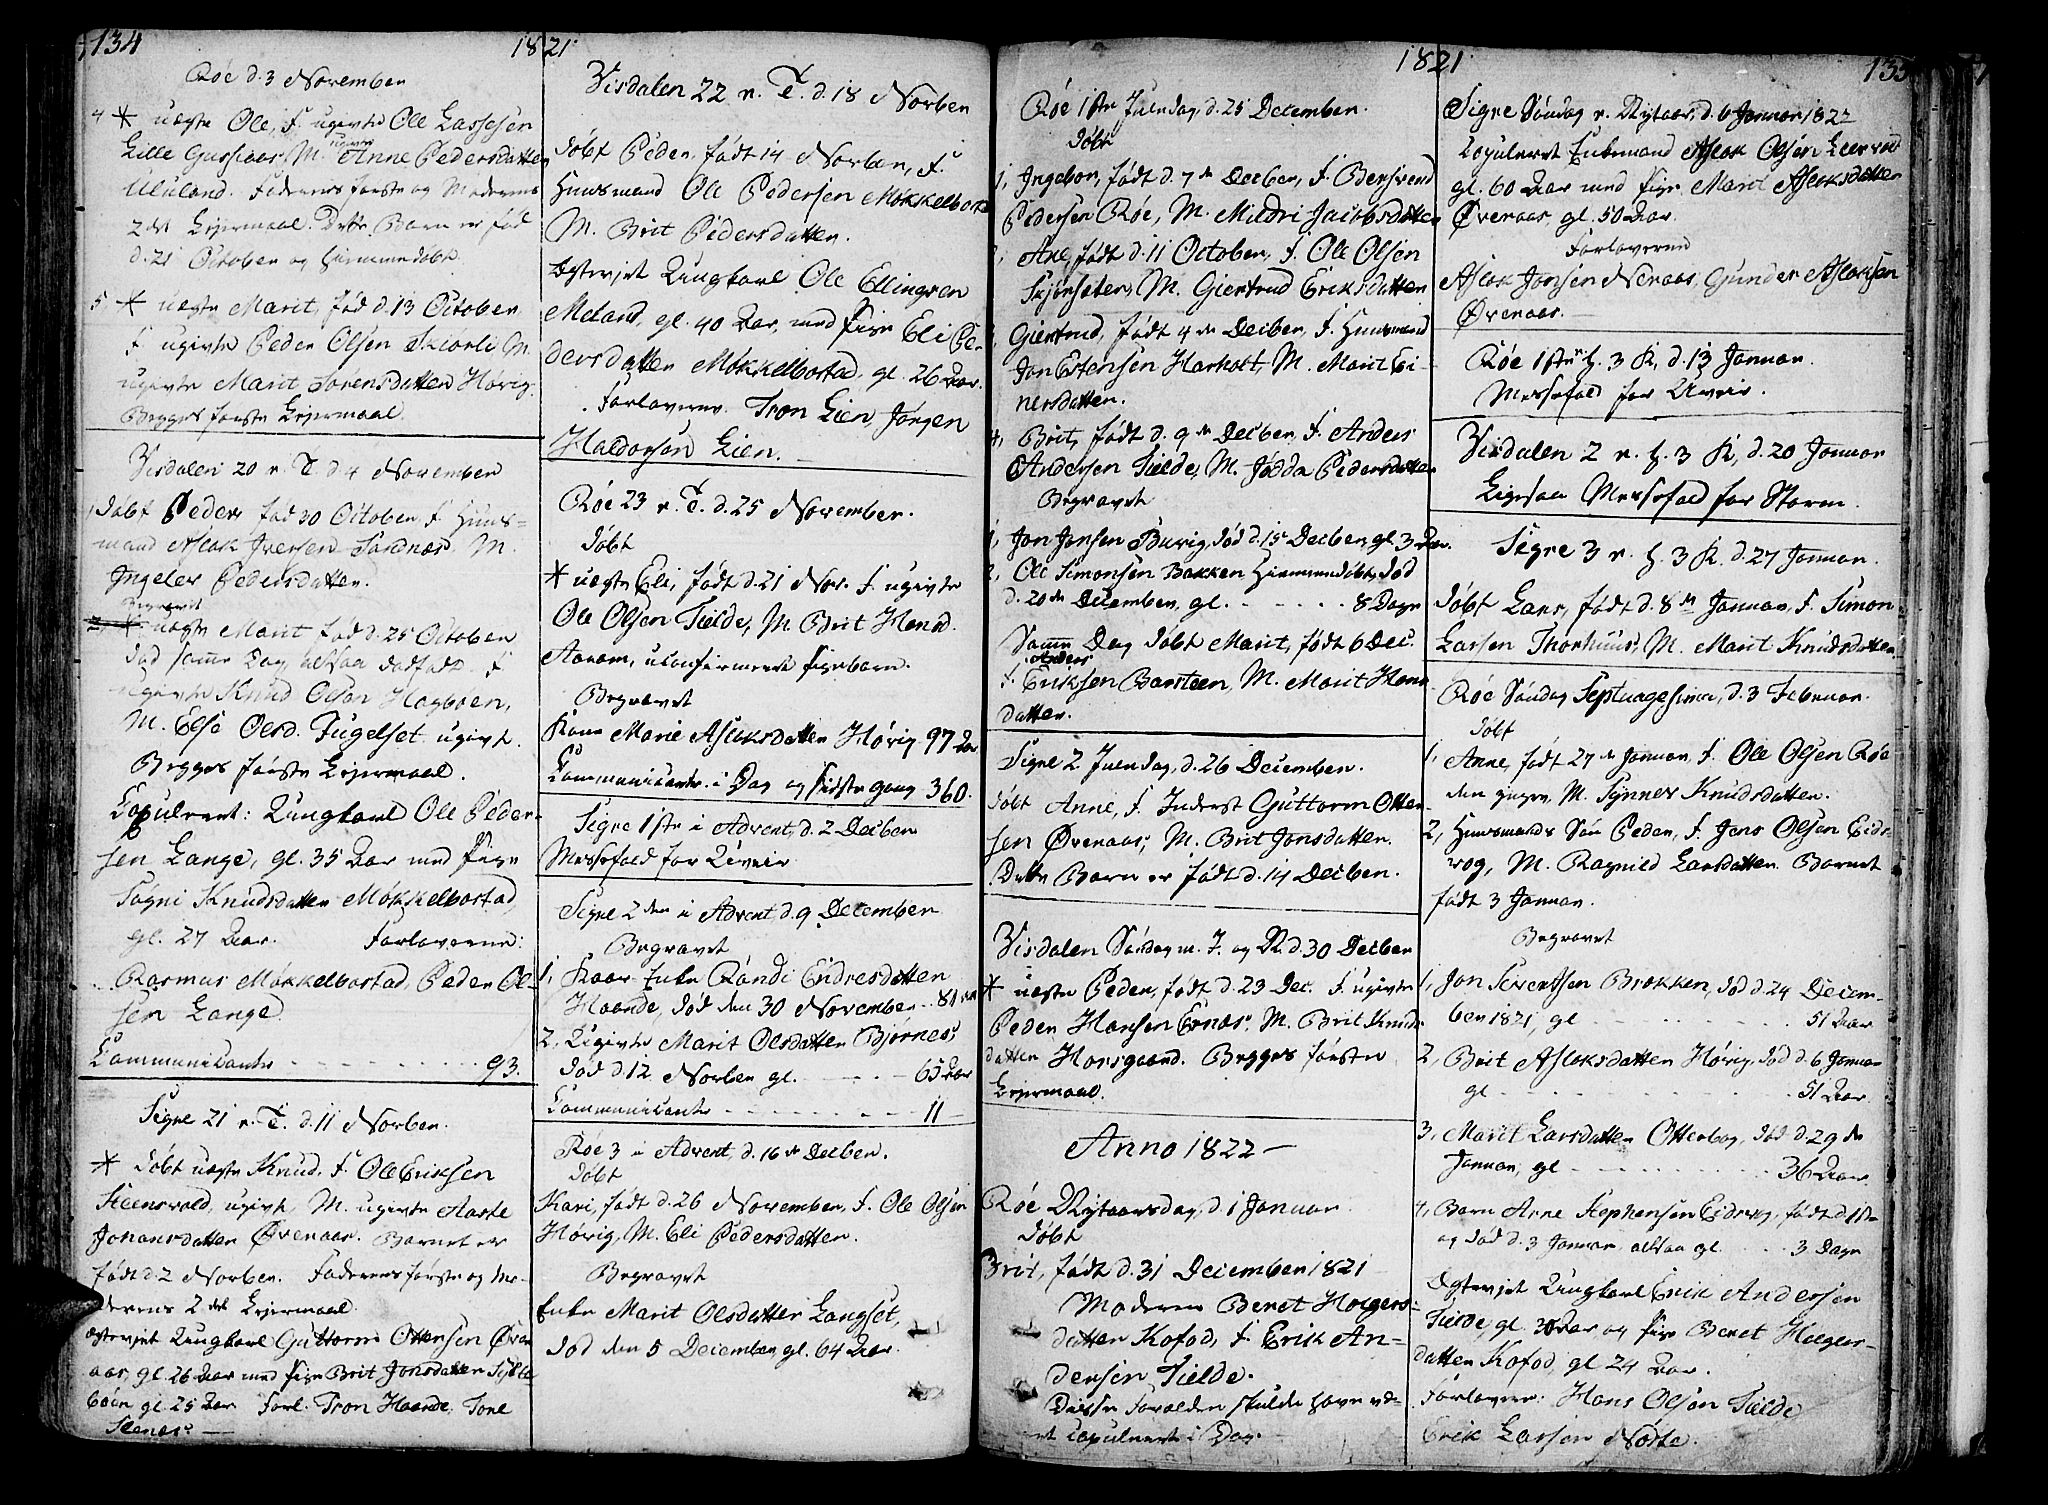 134
1821
Røe d. 3 November
4 * uægte Ole, F. ugivte Ole Lassesen
Lille M. Anne Pedersdatter
Ululand. Faderens første og Moderens
2det Leiermaal. Dette Barn er fød
d. 21 October og hiemmedøbt.
5 * uægte Marit, fød d. 13 October,
F. ugivte Peder Olsen M.
ugivte Marit Sørensdatter Hørig.
Begges første Leiermaal.
Visdalen 20 n. T. d. 4 November
Døbt Peder fød 30 October, F. Huus-
mand Aslak Iversen M.
Ingeler Pedersdatter.
Begravet
2, * uægte Marit fød d. 25 October
død samme Dag, altsaa F.
ugivte Knud Olsen Hagbøen,
M. Else Olsd. Fugelset ugivt.
Begges første Leiermaal.
Copuleret: Ungkarl Ole Peder-
sen Lange, gl. 35 Aar med Pige
Søgni Knudsdatter Møkkelbostad,
gl. 27 Aar. Forloverne:
Rasmus Møkkelbostad, Peder Ol-
sen Lange.
Communicanter 93.
Sigre 21 n. T. d. 11 Novber.
* Døbt uægte Knud. F. Ole Eriksen
Steensvold, ugivt, M. ugivte Aaste
Johansdatter Øvenaar. Barnet er
født d. 2 Novber. Faderens første og Mo-
derens 2det Leiermaal.
Egteviet Ungkarl Guttorm Ottersen Øven-
aar, gl. 26 Aar med Pige Brit Jonsdatter
bøen gl. 25 Aar Forl. Tron Haande, Tore
Visdalen 22 n. T. d. 18 Novber
Døbt Peder, født 14 Novber, F.
Huusmand Ole Pedersen Møkkelbost
M. Brit Pedersdatter.
Egteviet Ungkarl Ole Ellingsen
Meland, gl. 40 Aar, med Pige Eli Pe-
dersdatter Møkkelbostad, gl. 26 Aar.
Forloverne Tron Lien, Jørgen
Haldorsen Lien.
Røe 23 n. T. d. 25 November.
Døbt
* uægte Eli, født d. 21 Nov. F. ugivte
Ole Olsen Tielde, M. Brit Hansd.
uconfirmeret Pigebarn.
Begravet
Kone Marie Aslaksdatter Hørig 97 Aar
Communicanter i Dag og sidste gang 360.
Sigre 1ste i Advent, d. 2 Decber
Messefald for Uveir
Sigre 2den i Advent, d. 9 December
Begravet
1, Enke Randi Endresdatter
Haande, død den 30 November 81 Aar
2, Ugivte Marit Olsdatter Bjørnes,
død d. 12 Novber gl. 65 Aar
Communicanter 11
Røe 3 i Advent, d. 16de Decber.
Døbt
Kari, født d. 26 November, F. Ole Olsen
Hørig, M. Eli Pedersdatter.
Begravet
Enke Marit Olsdatter Langset,
død den 5 December, gl. 64 Aar.
1821
135
Røe 1ste Juledag, d. 25 December.
Døbt
1, Ingebor, født d. 7de Decber, F. Bersvend
Pedersen Røe, M. Mildri Jacobsdatter
2, Ane, født d. 11 October, F. Ole Olsen
M. Giertrud Eriksdatter
Giertrud, født 4de Decber, F. Huusmand
Jon Estensen Harholt, M. Marit Ei-
nersdatter.
4, Brit, født d. 9de Decber, F. Anders
Andersen Tielde, M. Jødda Pedersdatter
Begravet
1, Jon Jonsen Burig, død d. 15 Decber, gl. 3 Aar.
2, Ole Simonsen Bakken hiemmedøbt, død
d. 20de December, gl. 8 Dage
Samme Dag døbt Marit, født 6 Dec.
F. Anders Eriksen Barsteen, M. Marit Hans
datter.
Sigre 2 Juledag, d. 26 December.
Døbt Anne, F. Inderst Guttorm Otter-
sen Øvenaar, M. Brit Jonsdatter.
Dette Barn er født d. 14 Decber.
Visdalen Søndag m. J. og N. d. 30 Decber
* uægte Peder, født d. 23 Dec. F. ugivte
Peder Hansen Ernæs, M. Brit Knuds
datter Horsgaard. Begges første
Leiermaal.
Anno 1822
Røe Nytaarsdag, d. 1 Januar.
Døbt
Brit, født d. 31 December 1821
Moderen Beret Holgers-
datter Kofod, F. Erik An-
dersen Tielde.
Disse Forældre skulde have væ-
ret copuleret i Dag.
Sigre Søndag n. Nytaar, d. 6 Januar 1822
Copuleret Enkemand Aslak Olsen
gl. 60 Aar med Pige Marit Aslaksdatter
Øvenaar, gl. 50 Aar.
Forloverne
Aslak Jonsen Nenaas, Gunder Aslaksen
Øvenaar.
Røe 1ste n. H. 3 K, d. 13 Januar.
Messefald for Uveir.
Visdalen 2 n. H. 3 K, d. 20 Januar
Ligesaa Messefald for Storm.
Sigre 3 n. H. 3 K. d. 27 Januar.
Døbt Lars, født d. 8de Januar, F. Simon
Larsen Thorhuus, M. Marit Knudsdatter.
Røe Søndag Septuagesima, d. 3 Februar.
Døbt
1, Anne, født 27de Januar, F. Ole Olsen Røe
den yngre, M. Synner Knudsdatter.
2, Huusmands Søn Peder, F. Jens Olsen Eids-
vog, M. Ragnild Larsdatter. Barnet
født 3 Januar.
Begravet
1, Jon Sivertsen Brokken, død d. 24 Decem-
ber 1821, gl 51 Aar
2, Brit Aslaksdatter Hørig, død d. 6 Januar
gl 51 Aar
3, Marit Larsdatter Otterbog, død d. 29de
Januar, gl 36 Aar
4, Barn Arne Stephensen Eidsvog, født d. 1ste
og død d. 3 Januar, altsaa gl. 3 Dage
Egteviet Ungkarl Erik Andersen
Tielde, gl. 30 Aar og Pige Beret Holgers-
datter Kofod, gl 24 Aar.
Forlover: Hans Olsen Tielde
Erik Larsen Nøste.